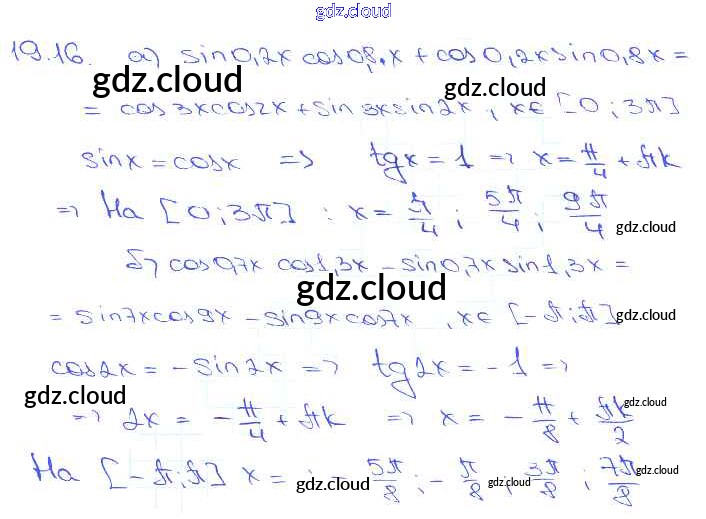 gdz.cloud
19.16. а) sin0,2x cos0,8x + cos0,2x sin0,8x =
gdz.cloud
= cos3x cos2x + sin3x sin2x, x∈[0; 3π]
sinx = cosx => tgx = 1 => x = π/4 + πk
=> На [0; 3π] : x = π/4; 5π/4; 9π/4
gdz.cloud
б) cos0,7x cos1,3x − sin0,7x sin1,3x =
gdz.cloud
= sin7x cos9x − sin9x cos7x, x∈[−π; π]
gdz.cloud
cos2x = −sin2x => tg2x = −1 =>
gdz.cloud
=> 2x = −π/4 + πk => x = −π/8 + πk/2
gdz.cloud
На [−π; π] x = − 5π/8; −π/8; 3π/8; 7π/8
gdz.cloud gdz.cloud gdz.cloud